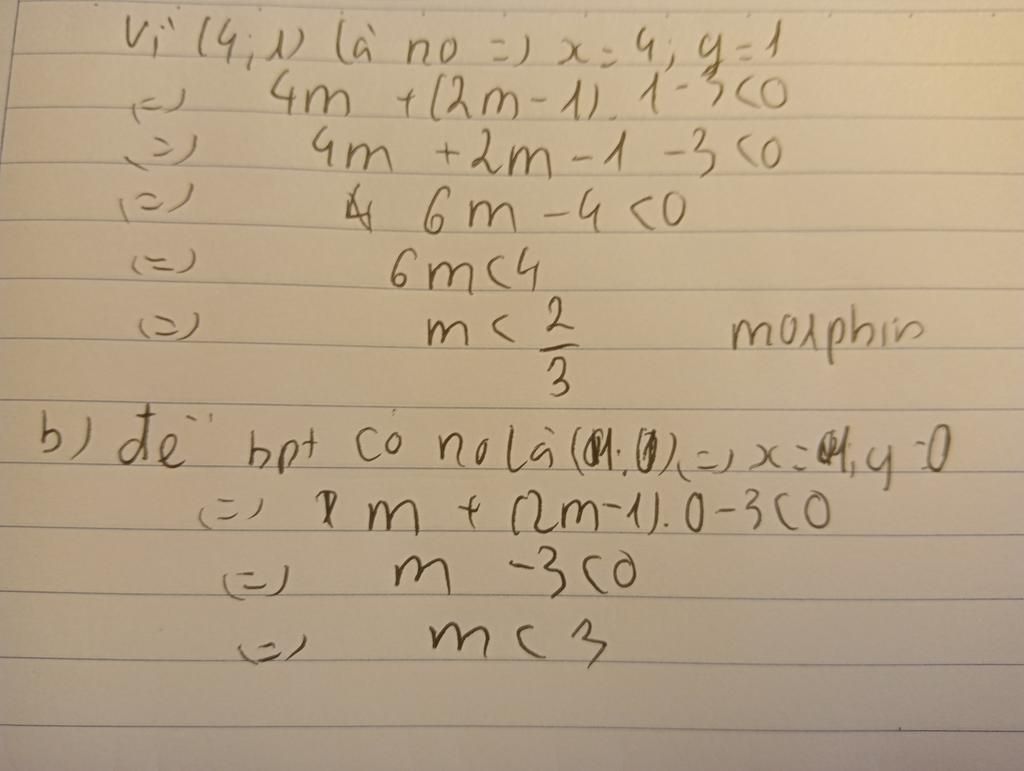 Vì (4;1) là no => x=4; y=1
(=) 4m + (2m-1). 1-3<0
(=) 4m + 2m - 1 - 3 <0
(=) 6m - 4 <0
(=) 6m<4
(=) m < 2/3 morphin
b) để bpt có no là (1;0) (=) x=1; y=0
(=) 1 m + (2m-1). 0-3<0
(=) m -3<0
(=) m < 3